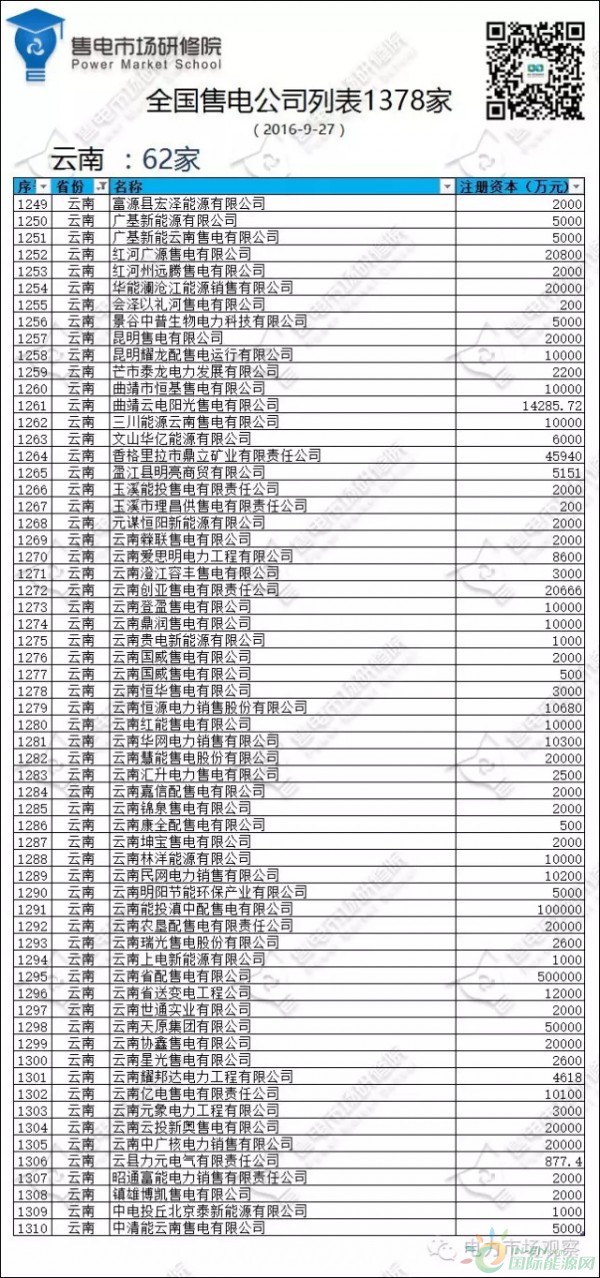 售电市场研修院
Power Market School
全国售电公司列表1378家
（2016-9-27）
云南 ：62家
序 省份 名称 注册资本（万元）
1249 云南 富源县宏泽能源有限公司 2000
1250 云南 广基新能源有限公司 5000
1251 云南 广基新能云南售电有限公司 5000
1252 云南 红河广源售电有限公司 20800
1253 云南 红河州远腾售电有限公司 2000
1254 云南 华能澜沧江能源销售有限公司 20000
1255 云南 会泽以礼河售电有限公司 200
1256 云南 景谷中普生物电力科技有限公司 5000
1257 云南 昆明售电有限公司 20000
1258 云南 昆明耀龙配售电运行有限公司 10000
1259 云南 芒市泰龙电力发展有限公司 2200
1260 云南 曲靖市恒基售电有限公司 10000
1261 云南 曲靖云电阳光售电有限公司 14285.72
1262 云南 三川能源云南售电有限公司 10000
1263 云南 文山华亿能源有限公司 6000
1264 云南 香格里拉市鼎立矿业有限责任公司 45940
1265 云南 盈江县明亮商贸有限公司 5151
1266 云南 玉溪能投售电有限责任公司 2000
1267 云南 玉溪市理昌供售电有限责任公司 200
1268 云南 元谋恒阳新能源有限公司 2000
1269 云南 云南 联售电有限公司 2000
1270 云南 云南爱思明电力工程有限公司 8600
1271 云南 云南澄江容丰售电有限公司 3000
1272 云南 云南创亚售电有限责任公司 20666
1273 云南 云南登盈售电有限公司 10000
1274 云南 云南鼎润售电有限公司 10000
1275 云南 云南贵电新能源有限公司 1000
1276 云南 云南国威售电有限公司 2000
1277 云南 云南国威售电有限公司 500
1278 云南 云南恒华售电有限公司 3000
1279 云南 云南恒源电力销售股份有限公司 10680
1280 云南 云南红能售电有限公司 10000
1281 云南 云南华网电力销售有限公司 10300
1282 云南 云南慧能售电股份有限公司 20000
1283 云南 云南汇升电力售电有限公司 2500
1284 云南 云南嘉信配售电有限公司 2000
1285 云南 云南锦泉售电有限公司 2000
1286 云南 云南康全配售电有限公司 500
1287 云南 云南坤宝售电有限公司 2000
1288 云南 云南林洋能源有限公司 10000
1289 云南 云南民网电力销售有限公司 10200
1290 云南 云南明阳节能环保产业有限公司 5000
1291 云南 云南能投滇中配售电有限公司 100000
1292 云南 云南农垦配售电有限责任公司 20000
1293 云南 云南瑞光售电股份有限公司 2600
1294 云南 云南上电新能源有限公司 1000
1295 云南 云南省配售电有限公司 500000
1296 云南 云南省送变电工程公司 12000
1297 云南 云南世通实业有限公司 2000
1298 云南 云南天原集团有限公司 50000
1299 云南 云南协鑫售电有限公司 20000
1300 云南 云南星光售电有限公司 2600
1301 云南 云南耀邦达电力工程有限公司 4618
1302 云南 云南亿电售电有限责任公司 10100
1303 云南 云南元象电力工程有限公司 3000
1304 云南 云南云投新奥售电有限公司 20000
1305 云南 云南中广核电力销售有限公司 20000
1306 云南 云县力元电气有限责任公司 877.4
1307 云南 昭通富能电力销售有限责任公司 2000
1308 云南 镇雄博凯售电有限公司 2000
1309 云南 中电投丘北京泰新能源有限公司 1000
1310 云南 中清能云南售电有限公司 5000
电力市场观察
国际能源网